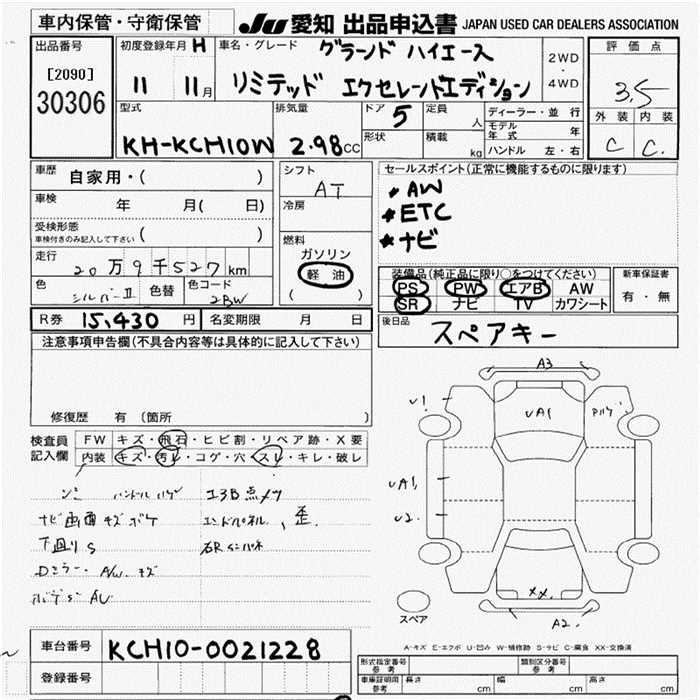 車内保管・守衛保管
JU 愛知 出品申込書 JAPAN USED CAR DEALERS ASSOCIATION
出品番号
[2090]
30306
初度登録年月 H
11 11月
車名・グレード グランド ハイエース
リミテッド エクセレントエディション
2WD・4WD
評価点
3.5
外装 内装
C C.
型式
KH-KCH10W
排気量
2.98cc
ドア 5
形状
定員 人
積載 kg
ディーラー・並行
モデル年式 年
ハンドル 左・右
車歴 自家用・( )
車検 年 月( 日)
受検形態
車検付きのみ記入して下さい ( )
走行 20万9千527km
色 シルバーII 色替 色コード 2BW
シフト AT
冷房
燃料
ガソリン
軽油
( )
セールスポイント(正常に機能するものに限ります)
★AW
★ETC
★ナビ
装備品(純正品に限り○をつけてください)
PS PW エアB AW
SR ナビ TV カワシート
新車保証書
有・無
R券 15,430円 名変期限 月 日
後日品 スペアキー
注意事項申告欄(不具合内容等は具体的に記入して下さい)
修復歴 有 (箇所
検査員記入欄
FW キズ・飛石・ヒビ割・リペア跡・X要
内装 キズ・汚レ・コゲ・穴・スレ・キレ・破レ
ハンドルハゲ エアB点メツ
ナビ画面キズボケ エンドパネル、歪
下回りS
Dミラー A/W キズ
A3
U1
UA1
UA1
U2
XX
A2
スペア
A-キズ E-エクボ U-凹み W-補修跡 S-サビ C-腐食 XX-交換済
車台番号 KCH10-0021228
登録番号
型式指定番号 参考 類別区分番号 参考
車庫証明用 参考 長さ cm 幅 cm 高さ cm